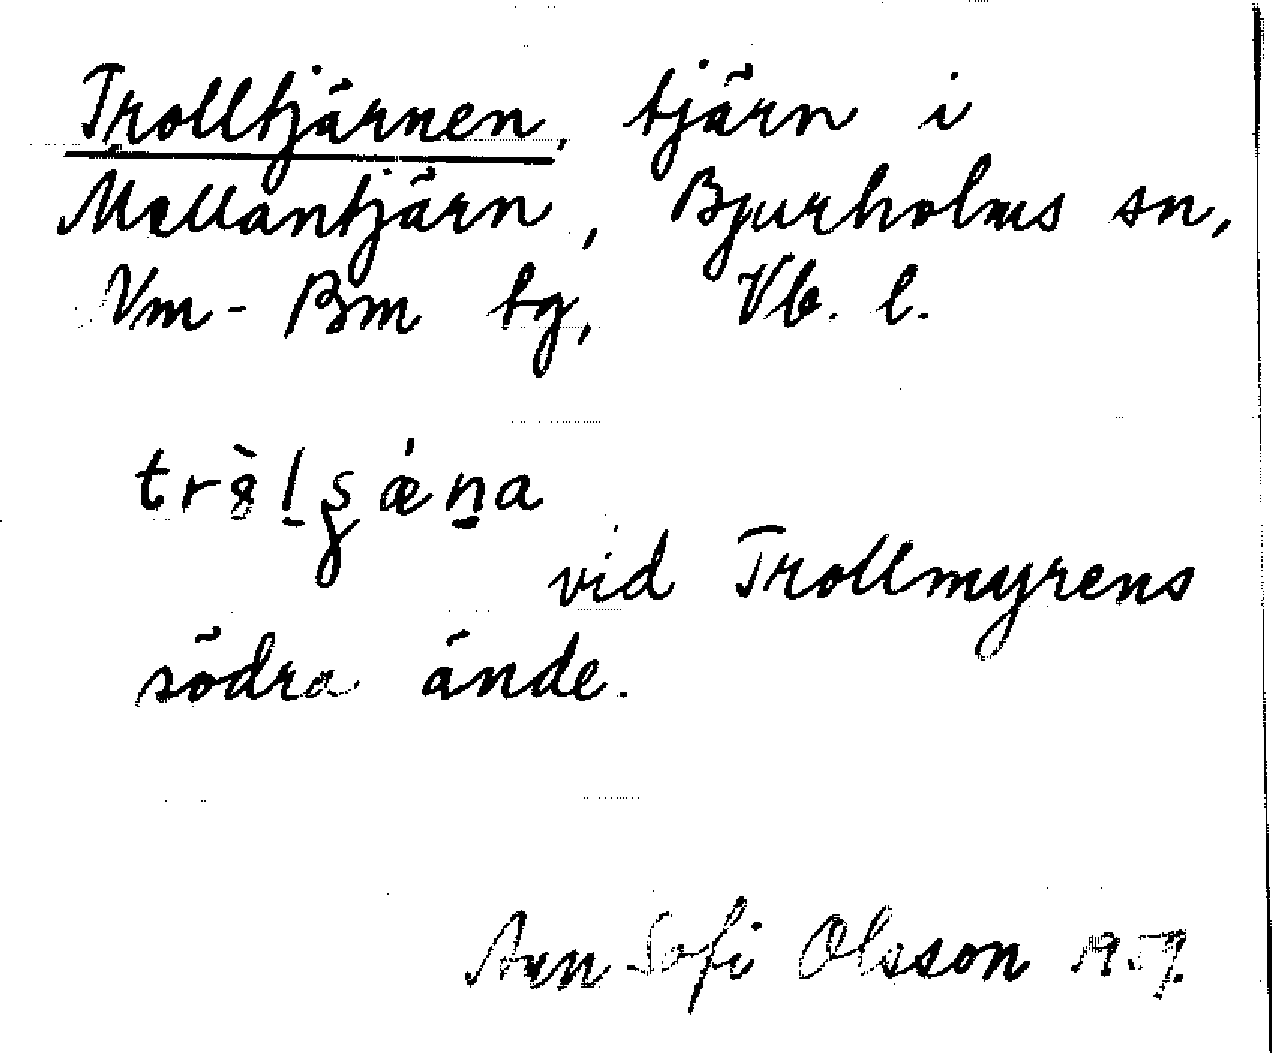 Trolltjärnen, tjärn i
Mellantjärn, Bjurholms sn,
Vm-Bm tg, Vb. l.
vid Trollmyrens
södra ände.
Ann Sofi Olsson 1959.